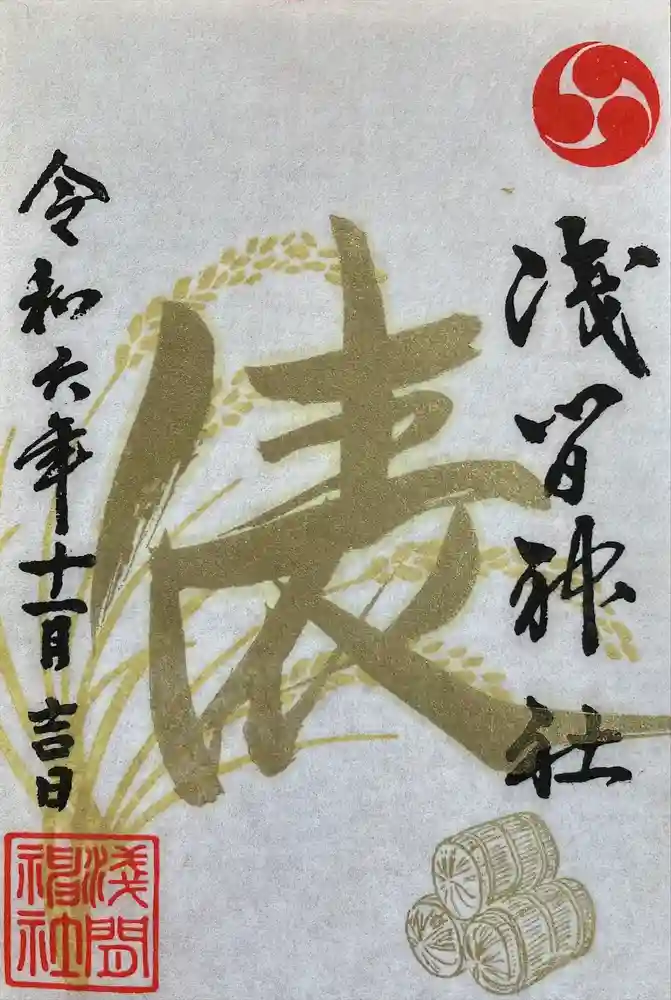 淺間神社
俵
令和六年十一月吉日
淺間神社